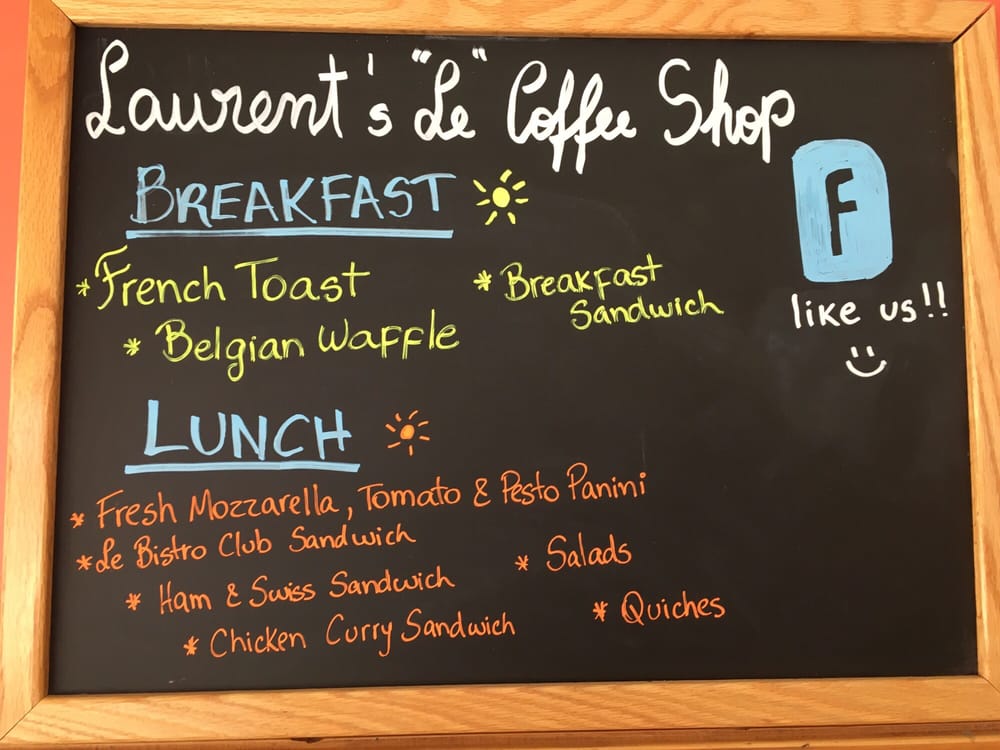 Laurent's "Le" Coffee Shop
BREAKFAST
* French Toast
* Breakfast
Sandwich
* Belgian Waffle
F
like us!!
LUNCH
* Fresh Mozzarella, Tomato & Pesto Panini
* Le Bistro Club Sandwich
* Ham & Swiss Sandwich
* Chicken Curry Sandwich
* Salads
* Quiches